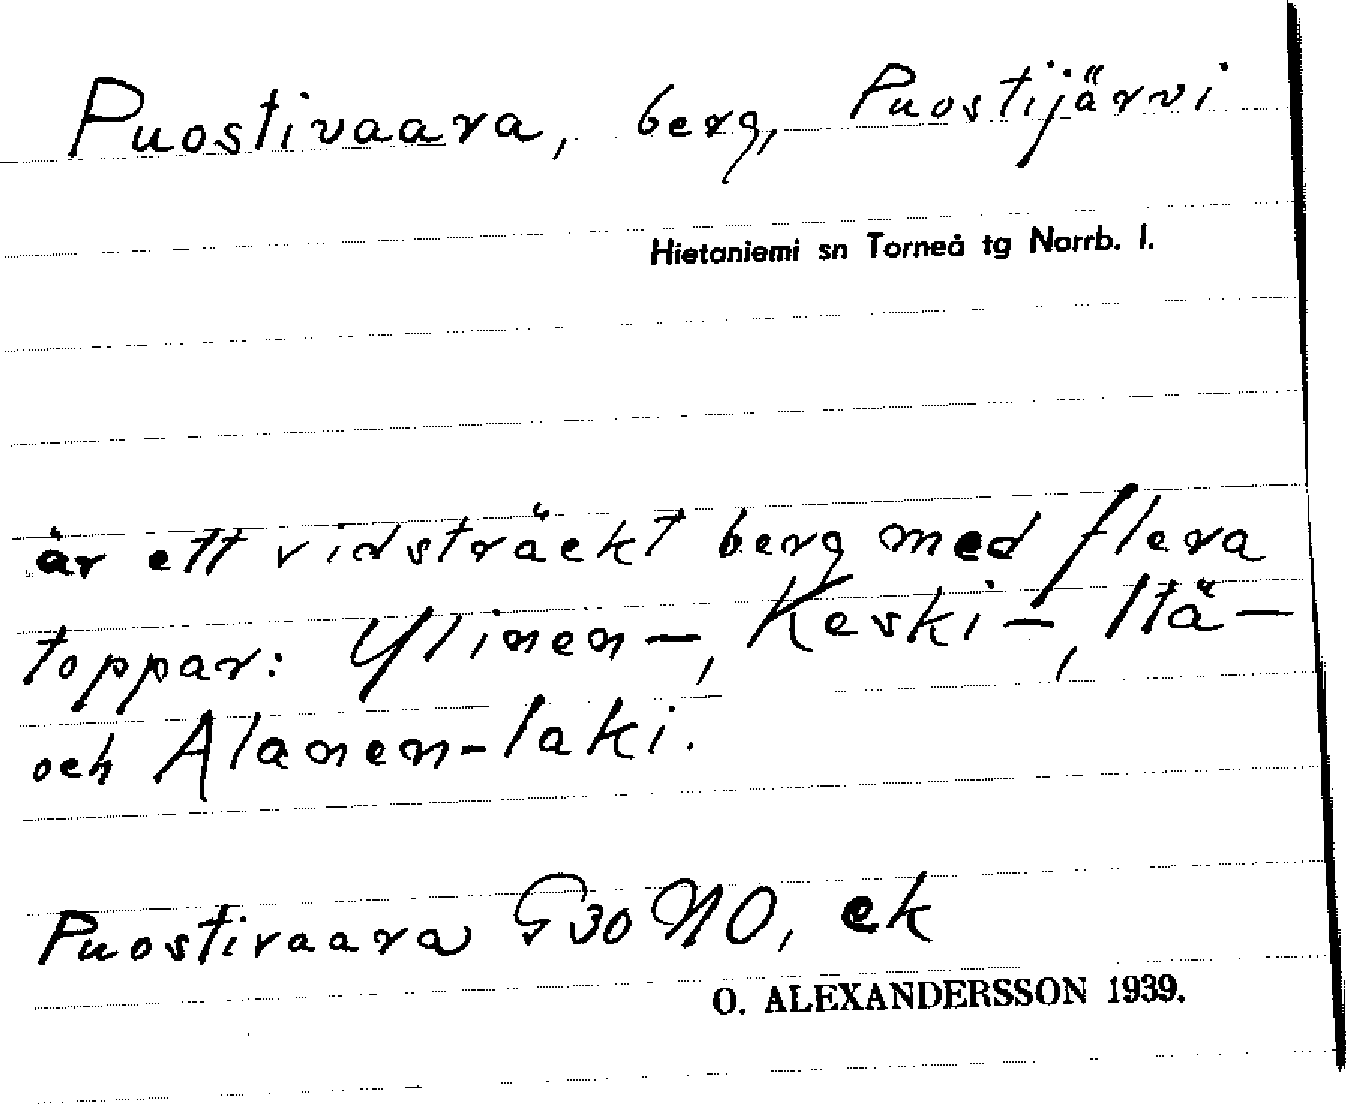 Puostivaara, berg, Puostijärvi
Hietaniemi sn Torneå tg Norrb. l.
är ett vidsträckt berg med flera
toppar: Ylinen-, Keski-, Itä-
och Alanen-laki.
Puostivaara G30NO, ek
O. ALEXANDERSSON 1939.